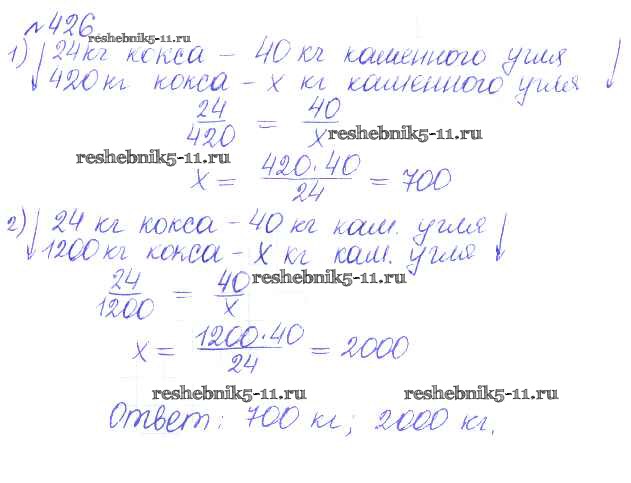 №426
reshebnik5-11.ru
1) 24 кг кокса – 40 кг каменного угля
420 кг кокса – x кг каменного угля
24/420 = 40/x
reshebnik5-11.ru
reshebnik5-11.ru
x = 420·40/24 = 700
2) 24 кг кокса – 40 кг кам. угля
1200 кг кокса – x кг кам. угля
24/1200 = 40/x
reshebnik5-11.ru
x = 1200·40/24 = 2000
reshebnik5-11.ru reshebnik5-11.ru
Ответ: 700 кг; 2000 кг.